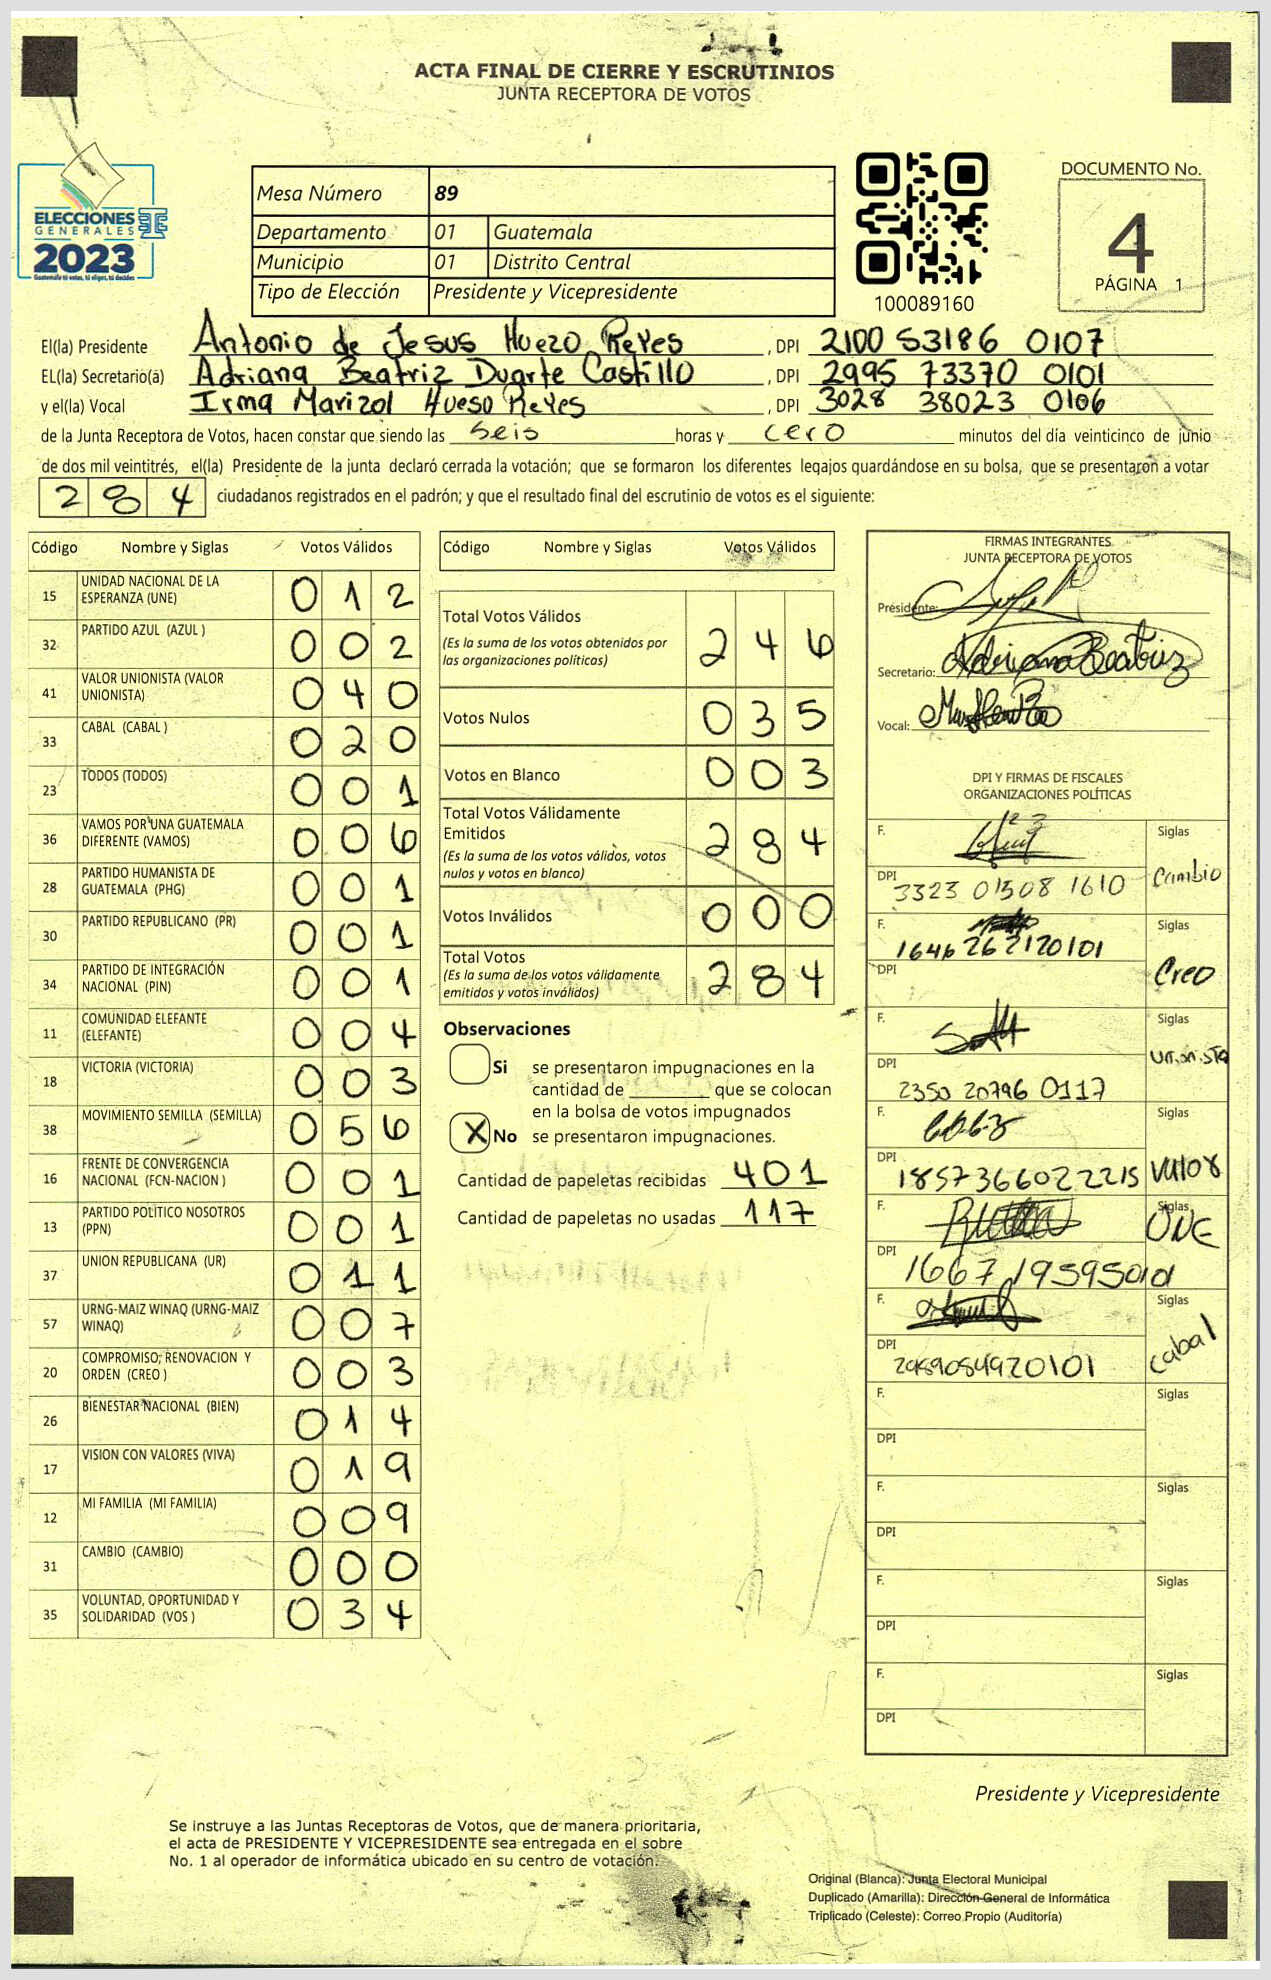 ACTA FINAL DE CIERRE Y ESCRUTINIOS
JUNTA RECEPTORA DE VOTOS
ELECCIONES
GENERALES
2023
Guatemala tú votas, tú eliges, tú decides
Mesa Número 89
Departamento 01 Guatemala
Municipio 01 Distrito Central
Tipo de Elección Presidente y Vicepresidente
100089160
DOCUMENTO No.
4
PÁGINA 1
El(la) Presidente Antonio de Jesus Huezo Reyes , DPI 2100 53186 0107
EL(la) Secretario(a) Adriana Beatriz Duarte Castillo , DPI 2995 73370 0101
y el(la) Vocal Irma Marizol Hueso Reyes , DPI 3028 38023 0106
de la Junta Receptora de Votos, hacen constar que siendo las seis horas y cero minutos del día veinticinco de junio
de dos mil veintitrés, el(la) Presidente de la junta declaró cerrada la votación; que se formaron los diferentes legajos guardándose en su bolsa, que se presentaron a votar
284 ciudadanos registrados en el padrón; y que el resultado final del escrutinio de votos es el siguiente:
Código Nombre y Siglas Votos Válidos
15 UNIDAD NACIONAL DE LA ESPERANZA (UNE) 012
32 PARTIDO AZUL (AZUL ) 002
41 VALOR UNIONISTA (VALOR UNIONISTA) 040
33 CABAL (CABAL ) 020
23 TODOS (TODOS) 001
36 VAMOS POR UNA GUATEMALA DIFERENTE (VAMOS) 006
28 PARTIDO HUMANISTA DE GUATEMALA (PHG) 001
30 PARTIDO REPUBLICANO (PR) 001
34 PARTIDO DE INTEGRACIÓN NACIONAL (PIN) 001
11 COMUNIDAD ELEFANTE (ELEFANTE) 004
18 VICTORIA (VICTORIA) 003
38 MOVIMIENTO SEMILLA (SEMILLA) 056
16 FRENTE DE CONVERGENCIA NACIONAL (FCN-NACION ) 001
13 PARTIDO POLÍTICO NOSOTROS (PPN) 001
37 UNION REPUBLICANA (UR) 011
57 URNG-MAIZ WINAQ (URNG-MAIZ WINAQ) 007
20 COMPROMISO, RENOVACION Y ORDEN (CREO ) 003
26 BIENESTAR NACIONAL (BIEN) 014
17 VISION CON VALORES (VIVA) 019
12 MI FAMILIA (MI FAMILIA) 009
31 CAMBIO (CAMBIO) 000
35 VOLUNTAD, OPORTUNIDAD Y SOLIDARIDAD (VOS ) 034
Código Nombre y Siglas Votos Válidos
Total Votos Válidos 246
(Es la suma de los votos obtenidos por
las organizaciones políticas)
Votos Nulos 035
Votos en Blanco 003
Total Votos Válidamente
Emitidos 284
(Es la suma de los votos válidos, votos
nulos y votos en blanco)
Votos Inválidos 000
Total Votos 284
(Es la suma de los votos válidamente
emitidos y votos inválidos)
Observaciones
Si se presentaron impugnaciones en la
cantidad de ________ que se colocan
en la bolsa de votos impugnados
X No se presentaron impugnaciones.
Cantidad de papeletas recibidas 401
Cantidad de papeletas no usadas 117
FIRMAS INTEGRANTES
JUNTA RECEPTORA DE VOTOS
Presidente:
Secretario: Adriana Beatriz
Vocal:
DPI Y FIRMAS DE FISCALES
ORGANIZACIONES POLÍTICAS
F. Siglas
DPI 3323 01508 1610 Cambio
F. Siglas
1646 262120101
DPI Creo
F. Siglas
DPI 2350 20796 0117 unionista
F. Siglas
DPI 1857366022215 Valor
F. Siglas
DPI UNE
F. Siglas
DPI 2989054920101 cabal
F. Siglas
DPI
F. Siglas
DPI
F. Siglas
DPI
F. Siglas
DPI
Presidente y Vicepresidente
Se instruye a las Juntas Receptoras de Votos, que de manera prioritaria,
el acta de PRESIDENTE Y VICEPRESIDENTE sea entregada en el sobre
No. 1 al operador de informática ubicado en su centro de votación.
Original (Blanca): Junta Electoral Municipal
Duplicado (Amarilla): Dirección General de Informática
Triplicado (Celeste): Correo Propio (Auditoría)